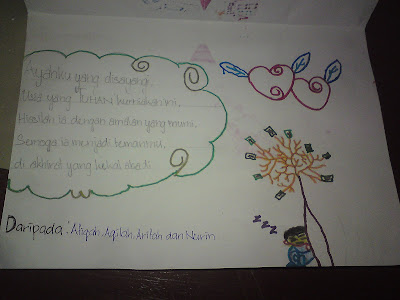 Ayahku yang disayangi
Usia yang TUHAN kurniakan ini,
Hiasilah ia dengan amalan yang murni.
Semoga ia menjadi temanmu,
di akhirat yang kekal abadi
Daripada : Atiqah, Aqilah, Arifah dan Nurin
z z z